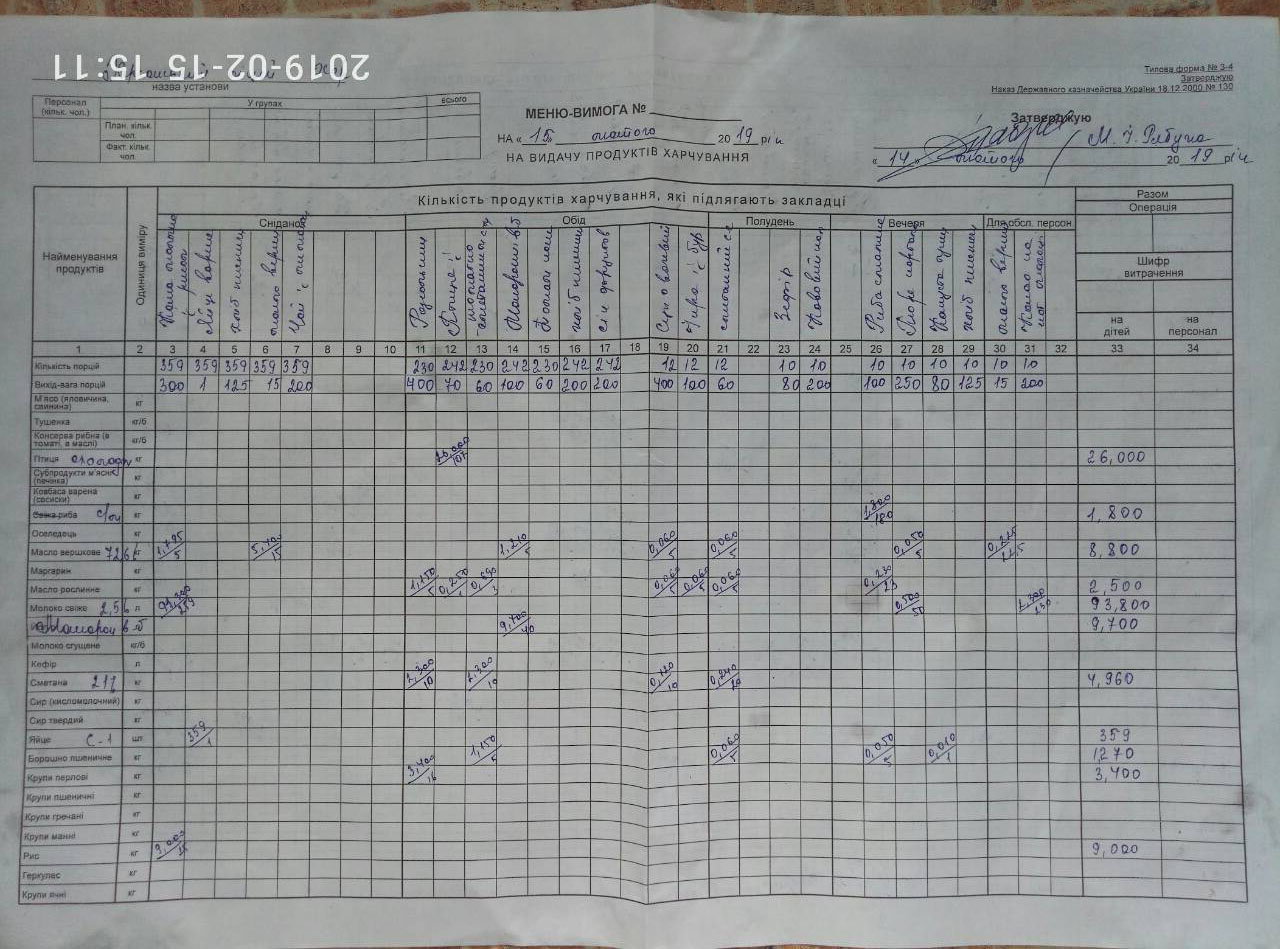 2019-02-15 15:11
назва установи
Типова форма № 3-4
Затверджую
Наказ Державного казначейства України 18.12.2000 № 130
Персонал (кільк. чол.) У групах всього
План. кільк. чол.
Факт. кільк. чол.
МЕНЮ-ВИМОГА №
НА «15» лютого 2019 рік
НА ВИДАЧУ ПРОДУКТІВ ХАРЧУВАННЯ
Затверджую
М. І. Рябуха
«14» лютого 2019 рік
Найменування продуктів
Одиниця виміру
Кількість продуктів харчування, які підлягають закладці
Разом
Операція
Шифр витрачення
на дітей
на персонал
Сніданок Обід Полудень Вечеря Для обсл. персон
Каша молочна рисова
Яйце варене
хліб пшенич
масло верш
Чай з
Розсольник
Птиця
Макарони в/б
хліб пшенич
сік фруктов
сметанний с
Зефір
Риба
Пюре картоп
Капуста туш
хліб пшенич
масло верш
Какао на
1 2 3 4 5 6 7 8 9 10 11 12 13 14 15 16 17 18 19 20 21 22 23 24 25 26 27 28 29 30 31 32 33 34
Кількість порцій 359 359 359 359 359 230 242 230 242 230 242 242 12 12 12 10 10 10 10 10 10 10 10
Вихід-вага порцій 300 1 125 15 200 400 70 60 100 60 200 200 400 100 60 80 200 100 250 80 125 15 200
М'ясо (яловичина, свинина) кг
Тушенка кг/б
Консерва рибна (в томаті, в маслі) кг/б
Птиця кг 26,000/107 26,000
Субпродукти м'ясні (печінка) кг
Ковбаса варена (сосиски) кг
Свіжа риба с/м кг 1,800/180 1,800
Оселедець кг
Масло вершкове 72,6% кг 1,795/5 5,400/15 1,210/5 0,060/5 0,060/5 0,050/5 8,800
Маргарин кг
Масло рослинне кг 1,150/5 0,250/1 0,690/3 0,060/5 0,060/5 0,060/5 0,230/23 2,500
Молоко свіже 2,5% л 0,500/50 1,300/130 93,800
Макарони в б 9,700/40 9,700
Молоко сгущене кг/б
Кефір л
Сметана 21% кг 2,300/10 2,300/10 0,120/10 0,240/20 4,960
Сир (кисломолочний) кг
Сир твердий кг
Яйце С-1 шт 359/1 359
Борошно пшеничне кг 1,150/5 0,060/5 0,050/5 0,010/1 1,270
Крупи перлові кг 3,400/15 3,400
Крупи пшеничні кг
Крупи гречані кг
Крупи манні кг
Рис кг 9,000/25 9,000
Геркулес кг
Крупи ячні кг